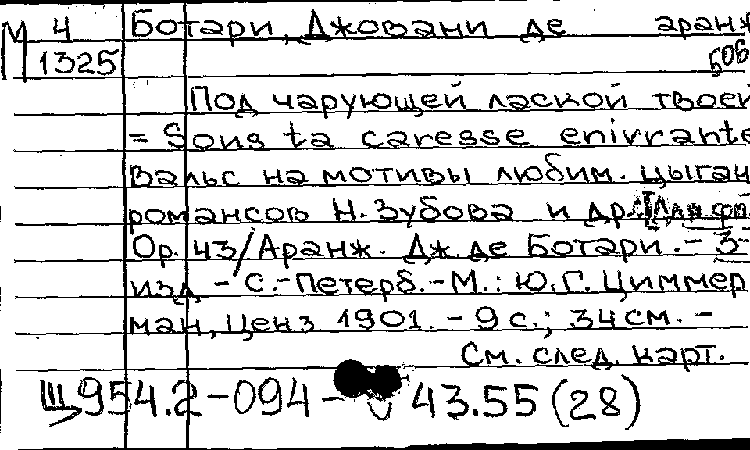 М 4 Ботари, Джовани де аранж
1325 506
Под чарующей лаской твоей
= Sous ta caresse enivrante
Вальс на мотивы любим. цыган
романсов Н. Зубова и др. Для фп
Op. 43/Аранж. Дж. де Ботари. - 3-
изд - С.-Петерб.-М.: Ю.Г. Циммер
ман, ценз 1901. - 9 с.; 34 см. -
См. след. карт.
Щ954.2-094- 43.55 (28)